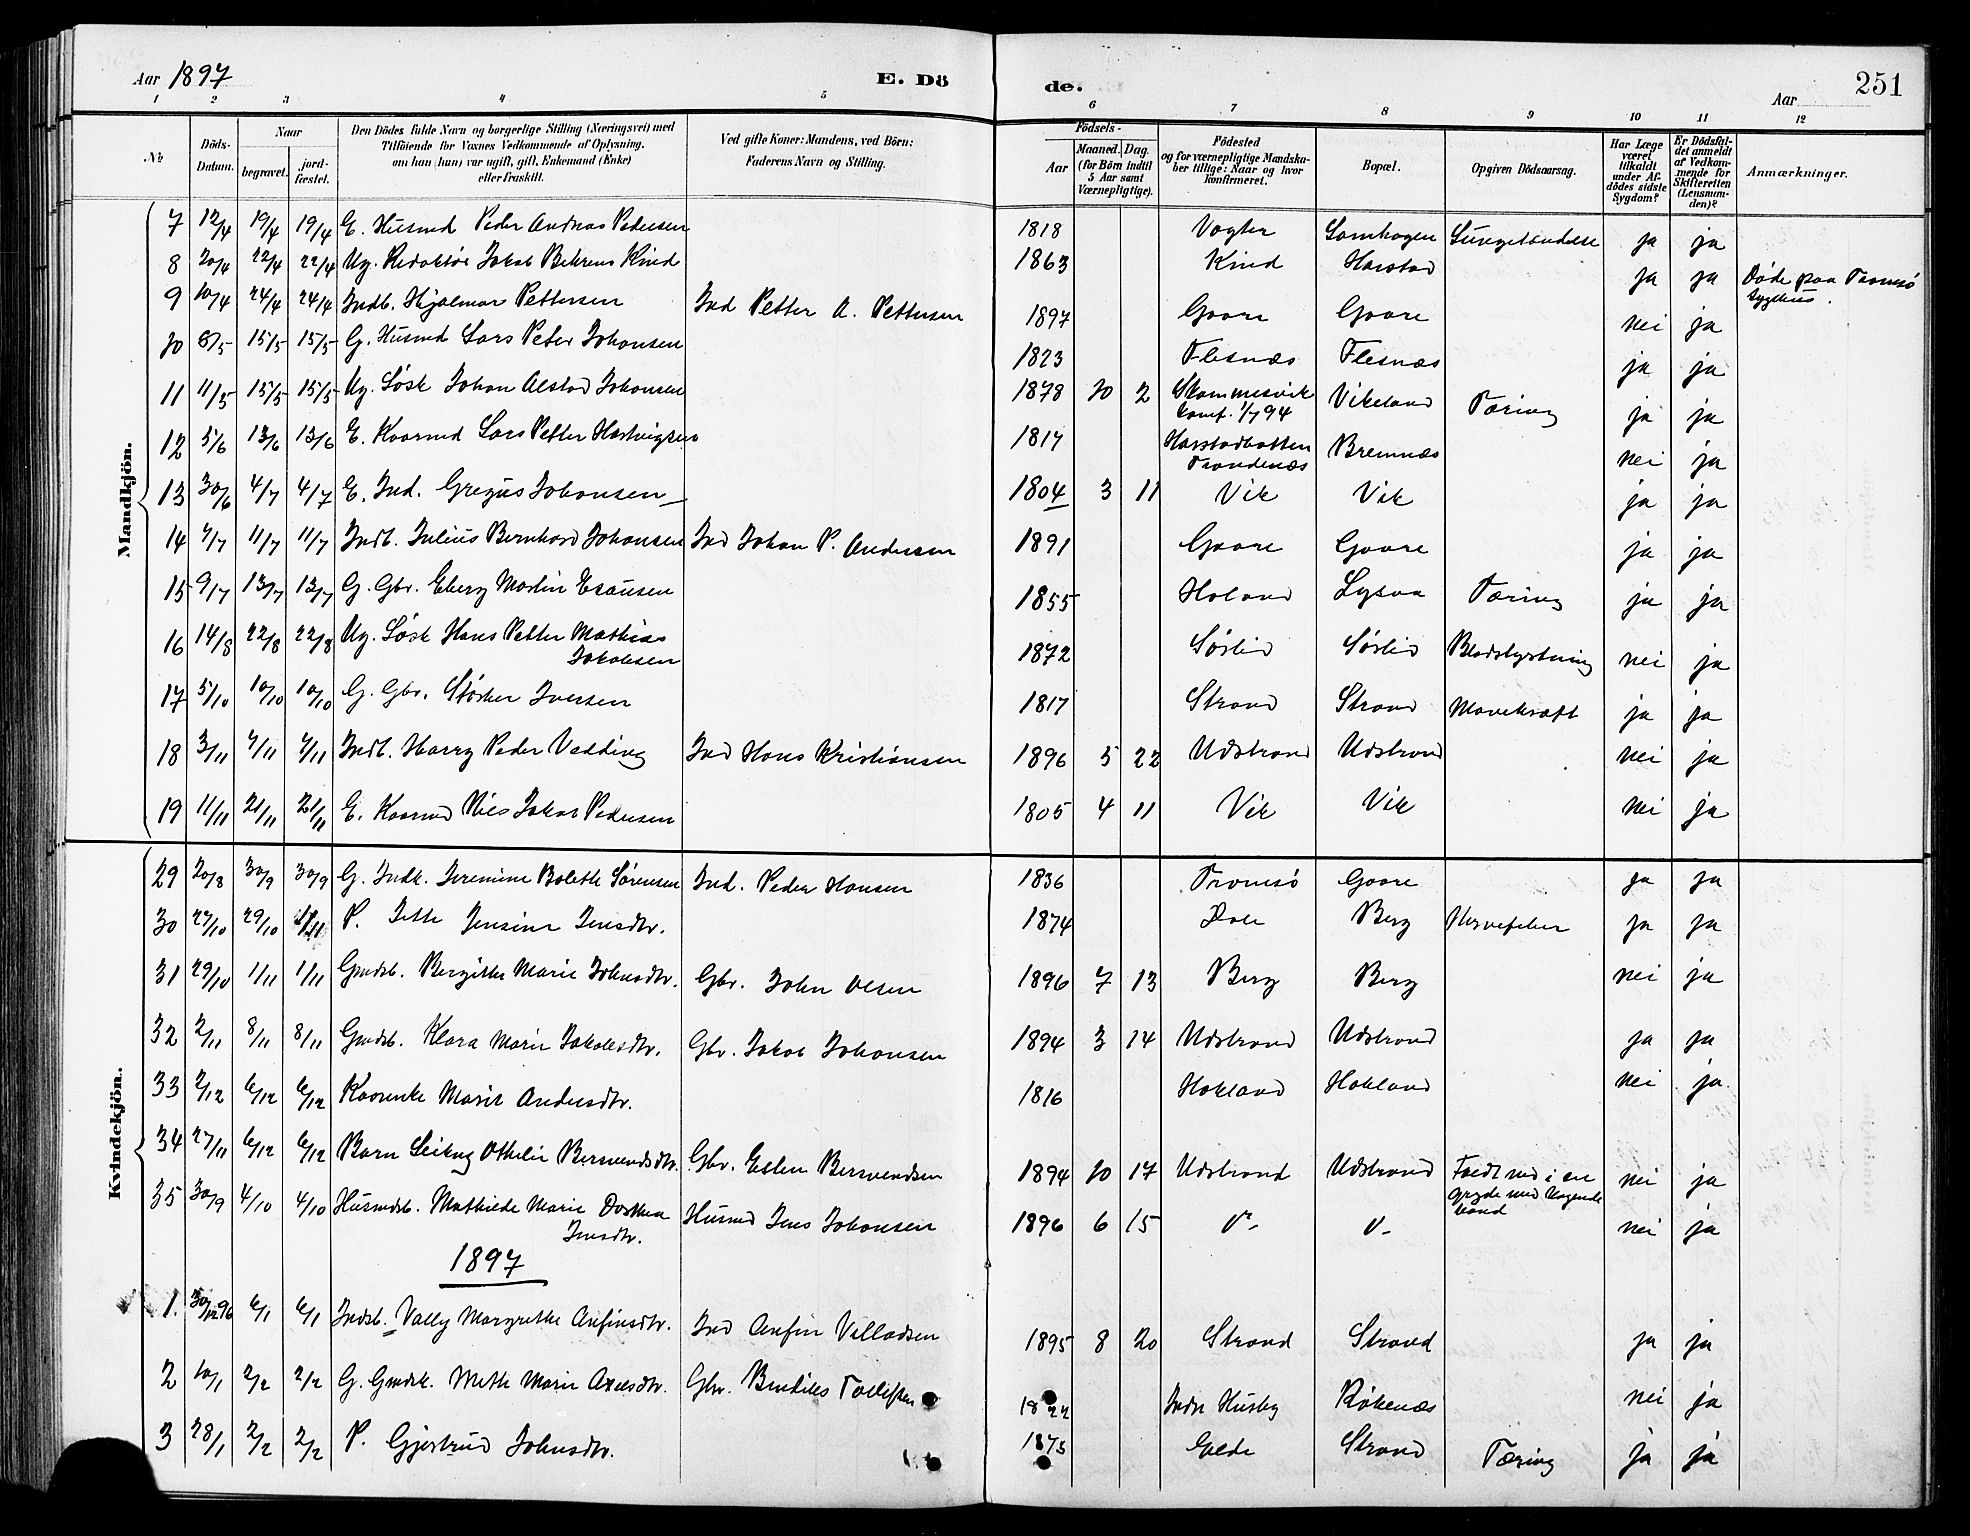 Aar 1897 E. Dö de. Aar 251
1 2 3 4 5 6 7 8 9 10 11 12
No
Döds-Datum.
Naar
begravet.
jord-fæstet.
Den Dödes fulde Navn og borgerlige Stilling (Næringsvei) med
Tilföiende for Voxnes Vedkommende af Oplysning.
om han (hun) var ugift, gift, Enkemand (Enke)
eller fraskilt.
Ved gifte Koner: Mandens, ved Börn:
Faderens Navn og Stilling.
Födsels-
Aar
Maaned. Dag.
(for Börn indtil
5 Aar samt
Værnepligtige).
Födested
og for værnepligtige Mandska-
ber tillige: Naar og hvor
konfirmeret.
Bopæl.
Opgiven Dödsaarsag.
Har Læge
været
tilkaldt
under Af-
dödes sidste
Sygdom?
Er Dödsfal-
det anmeldt
af Vedkom-
mende for
Skifteretten
(Lensman-
den)?
Anmærkninger.
Mandkjön.
7 12/4 19/4 19/4 E. Husmd Peder Andreas Pedersen 1818 Vogter Samhagen Lungebetændelse ja ja
8 20/4 22/4 22/4 Ug. Redaktør Jakob Behrens Kind 1863 Kind Harstad ja ja Døde paa Tromsö
Sygehus.
9 10/4 24/4 24/4 Indb. Hjalmar Pettersen Ind Petter A. Pettersen 1897 Gaare Gaare nei ja
10 8/5 15/5 15/5 G. Husmd Lars Peter Johansen 1823 Flesnæs Flesnæs ja ja
11 11/5 15/5 15/5 Ug. Løsk Johan Alstad Johansen 1878 10 2 Skammesvik Vikeland Tæring ja ja
konf. 1/7 94
12 5/6 13/6 13/6 E. Kaarmd Lars Petter Hartvigsen 1817 Harstadbotten Bremnæs nei ja
Trondenæs
13 30/6 4/7 4/7 E. Ind. Gregus Johansen 1804 3 11 Vik Vik ja ja
14 7/7 11/7 11/7 Indb. Julius Bernhard Johansen Ind Johan P. Andersen 1891 Gaare Gaare ja ja
15 9/7 13/7 13/7 G. Gbr. Eberg Martin Esausen 1855 Haland Lysaa Tæring ja ja
16 14/8 22/8 22/8 Ug. Løsk Hans Petter Mathias 1872 Sørlid Sørlid Blodstyrtning nei ja
Jakobsen
17 5/10 10/10 10/10 G. Gbr. Størker Iversen 1817 Strand Strand Mavekræft ja ja
18 3/11 7/11 7/11 Indb. Harry Peder Vedding Ind Hans Kristiansen 1896 5 22 Udstrand Udstrand nei ja
19 11/11 21/11 21/11 E. Kaarmd Nils Jakob Pedersen 1805 4 11 Vik Vik nei ja
Kvindekjön.
29 20/8 30/9 30/9 G. Indk. Jeremine Bolette Sørensen Ind. Peder Hansen 1836 Tromsö Gaare ja ja
30 27/10 29/10 P. Jette Jensine Jensdtr. 1874 Dale Berg Nervefeber ja ja
31 29/10 1/11 1/11 Gmdsb. Bergithe Marie Johnsdtr. Gbr. John Olsen 1896 7 13 Berg Berg nei ja
32 2/11 8/11 8/11 Gmdsb. Klara Marie Jakobsdtr. Gbr. Jakob Johansen 1894 3 14 Udstrand Udstrand ja ja
33 2/12 6/12 6/12 Kaarenke Marit Andersdtr. 1816 Hokland Hokland nei ja
34 27/11 6/12 6/12 Barn Othelie Bersvendsdtr. Gbr. Esten Bersvendsen 1894 10 17 Udstrand Udstrand Faldt ned i en nei ja
gryde med kogende
vand
35 30/9 4/10 4/10 Husmdsb. Mathilde Marie Dorthea Husmd Jens Johansen 1896 6 15 nei ja
Jensdtr.
1897
1. 30/12 96 6/1 6/1 Indsb. Vally Margrethe Anfinsdtr. Ind Anfin Villadsen 1895 8 20 Strand Strand ja ja
2 10/1 2/2 2/2 G. Gmdsk. Mette Marie Axelsdtr. Gbr. Tollefsen Indre Husby Røkenæs nei ja
3 28/1 2/2 2/2 P. Gjertrud Johnsdtr. 1875 Elde Strand Tæring ja ja